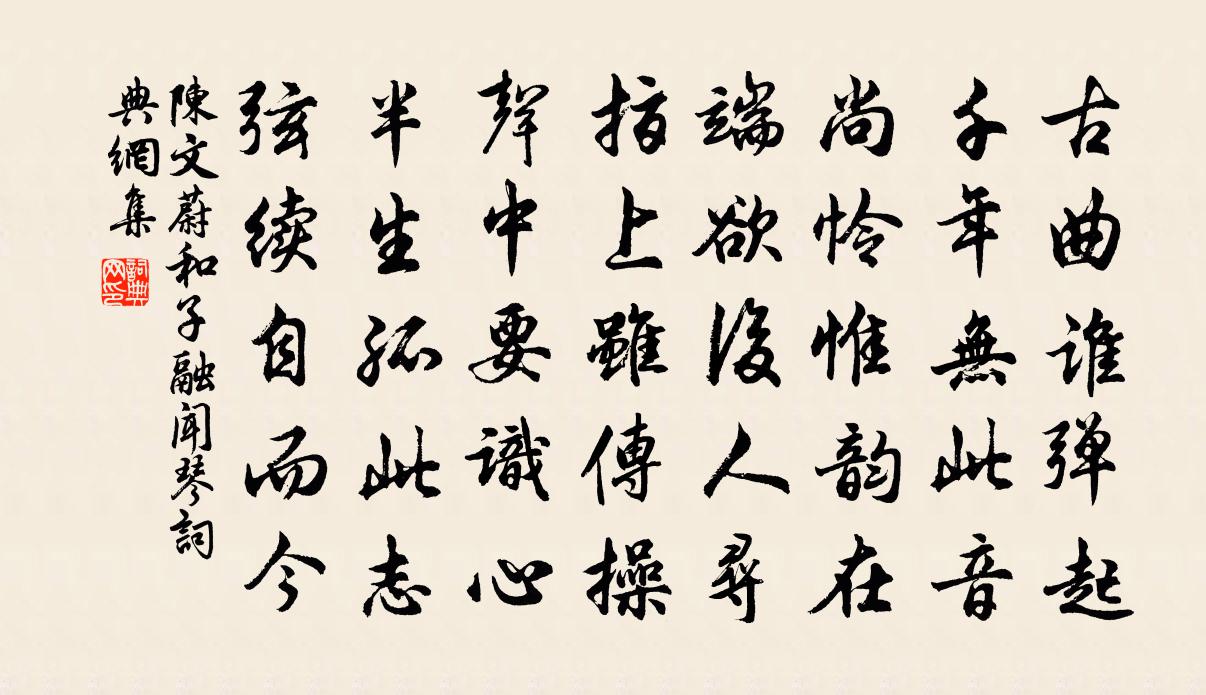 古曲谁弹起
千年無此音
尚怜惟韵在
端欲後人尋
指上雖傳操
聲中要識心
半生孤此志
弦续自而今
陳文蔚和子融闻琴詞
典網集
詞典
网印